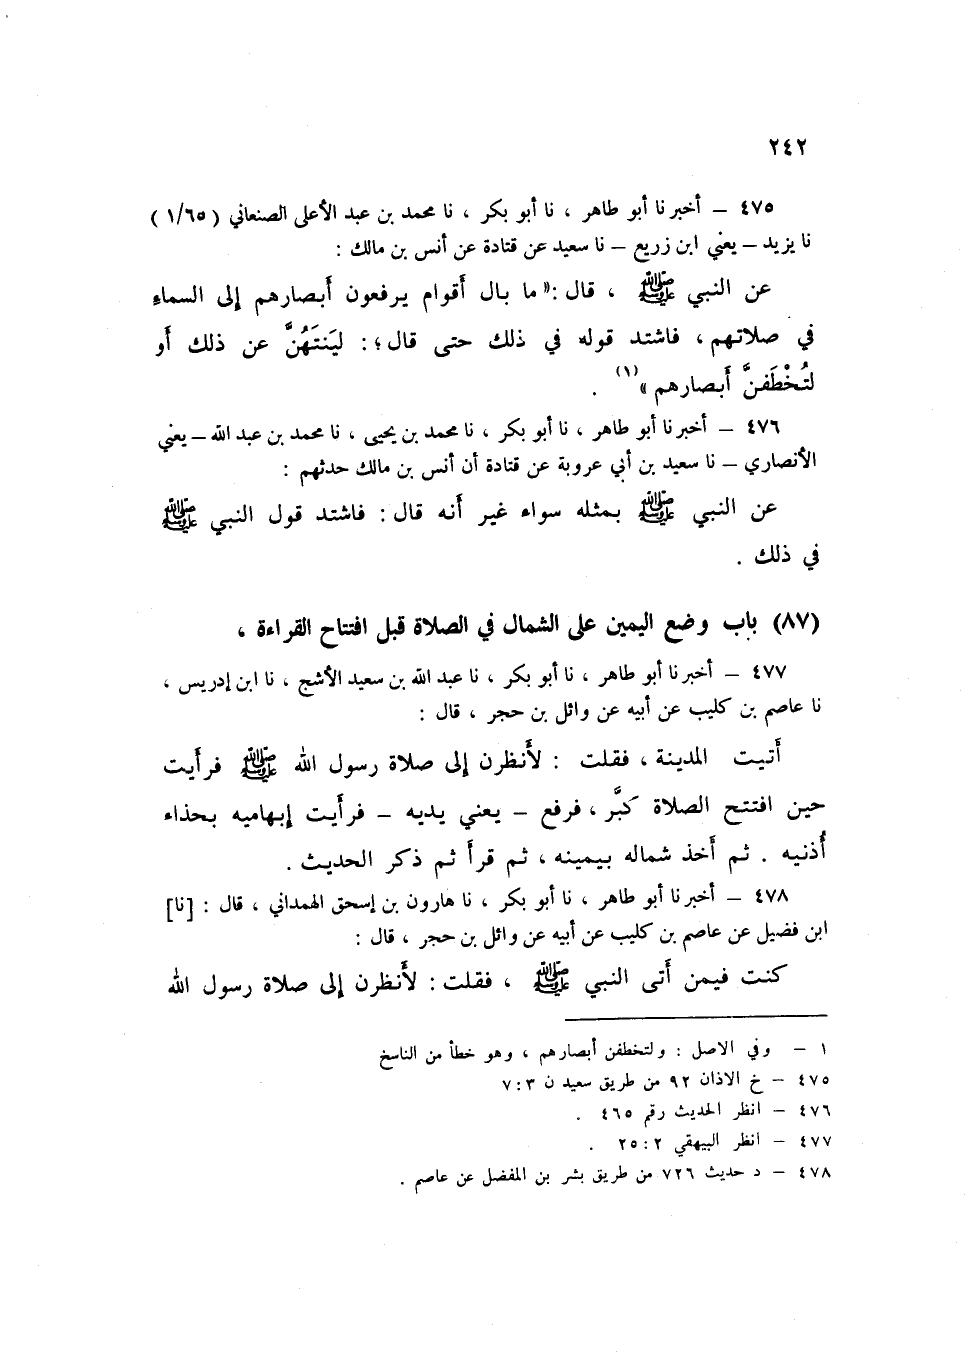 ٢٤٢
٤٧٥ – أخبرنا أبو طاهر ، نا أبو بكر ، نا محمد بن عبد الأعلى الصنعاني ( ١/٦٥ )
نا يزيد – يعني ابن زريع – نا سعيد عن قتادة عن أنس بن مالك :
عن النبي ﷺ ، قال : « ما بال أقوام يرفعون أبصارهم إلى السماء
في صلاتهم ، فاشتد قوله في ذلك حتى قال ؛ : لَيَنتَهُنَّ عن ذلك أو
لتُخْطَفنَّ أبصارهم »(١) .
٤٧٦ – أخبرنا أبو طاهر ، نا أبو بكر ، نا محمد بن يحيى ، نا محمد بن عبد الله – يعني
الأنصاري – نا سعيد بن أبي عروبة عن قتادة أن أنس بن مالك حدثهم :
عن النبي ﷺ بمثله سواء غير أنه قال : فاشتد قول النبي ﷺ
في ذلك .
(٨٧) باب وضع اليمين على الشمال في الصلاة قبل افتتاح القراءة ،
٤٧٧ – أخبرنا أبو طاهر ، نا أبو بكر ، نا عبد الله بن سعيد الأشج ، نا ابن إدريس ،
نا عاصم بن كليب عن أبيه عن وائل بن حجر ، قال :
أتيت المدينة ، فقلت : لأنظرن إلى صلاة رسول الله ﷺ فرأيت
حين افتتح الصلاة كبَّر ، فرفع – يعني يديه – فرأيت إبهاميه بحذاء
أُذنيه . ثم أخذ شماله بيمينه ، ثم قرأ ثم ذكر الحديث .
٤٧٨ – أخبرنا أبو طاهر ، نا أبو بكر ، نا هارون بن إسحق الهمداني ، قال : [نا]
ابن فضيل عن عاصم بن كليب عن أبيه عن وائل بن حجر ، قال :
كنت فيمن أتى النبي ﷺ ، فقلت : لأنظرن إلى صلاة رسول الله
١ – وفي الاصل : ولتخطفن أبصارهم ، وهو خطأ من الناسخ
٤٧٥ – خ الاذان ٩٢ من طريق سعيد ن ٣ : ٧
٤٧٦ – انظر الحديث رقم ٤٦٥ .
٤٧٧ – انظر البيهقي ٢ : ٢٥ .
٤٧٨ – د حديث ٧٢٦ من طريق بشر بن المفضل عن عاصم .